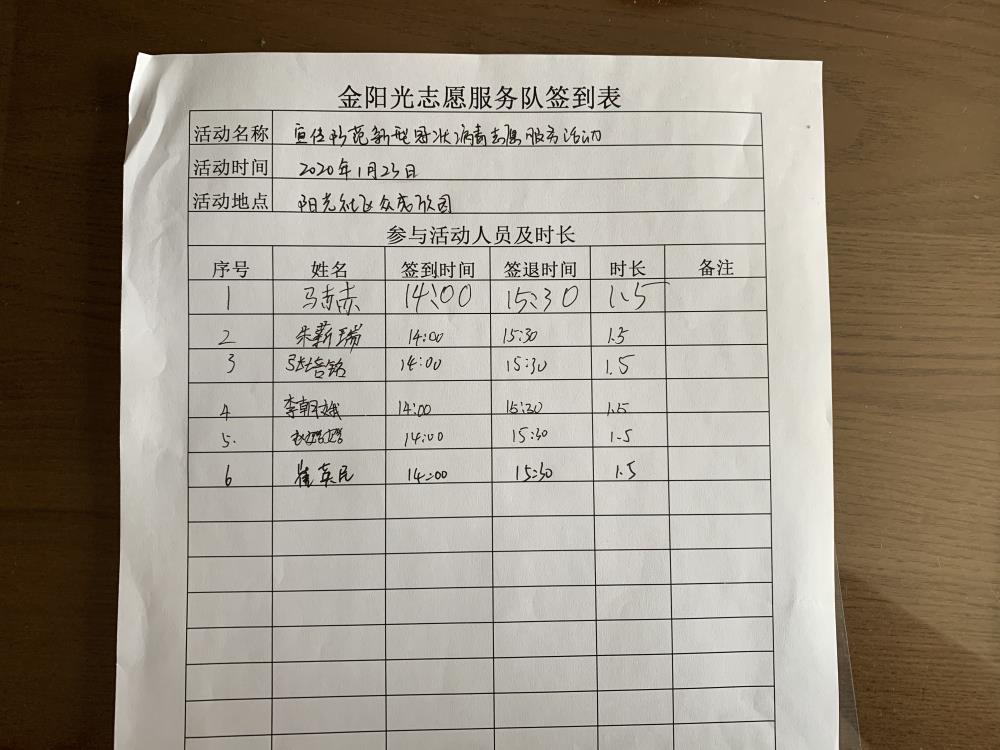 金阳光志愿服务队签到表
活动名称 宣传防范新型冠状病毒志愿服务活动
活动时间 2020年1月23日
活动地点 阳光社区众成欣园
参与活动人员及时长
序号 姓名 签到时间 签退时间 时长 备注
1 马赤赤 14:00 15:30 1.5
2 朱新瑞 14:00 15:30 1.5
3 张培铭 14:00 15:30 1.5
4 李朝娥 14:00 15:30 1.5
5. 14:00 15:30 1.5
6 崔英民 14:00 15:30 1.5